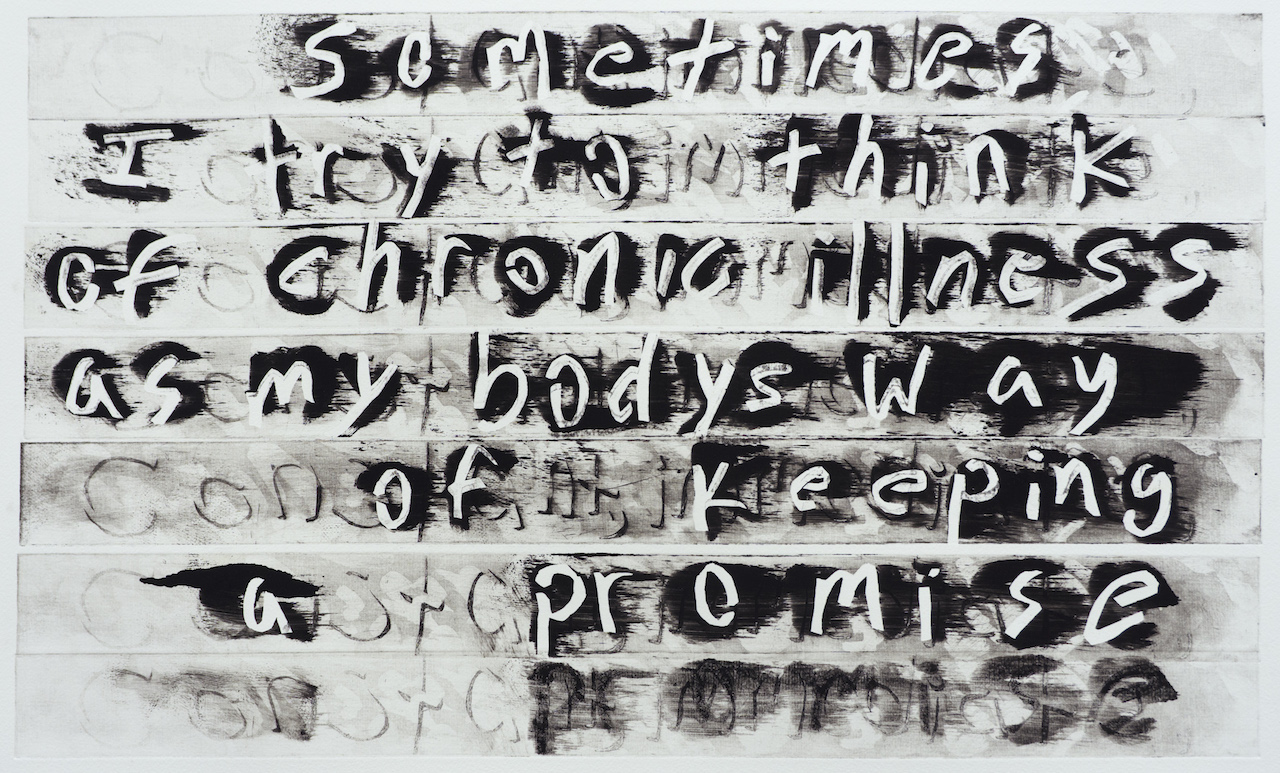 sometimes
I try to think
of chronic illness
as my bodys way
of keeping
a promise
promise